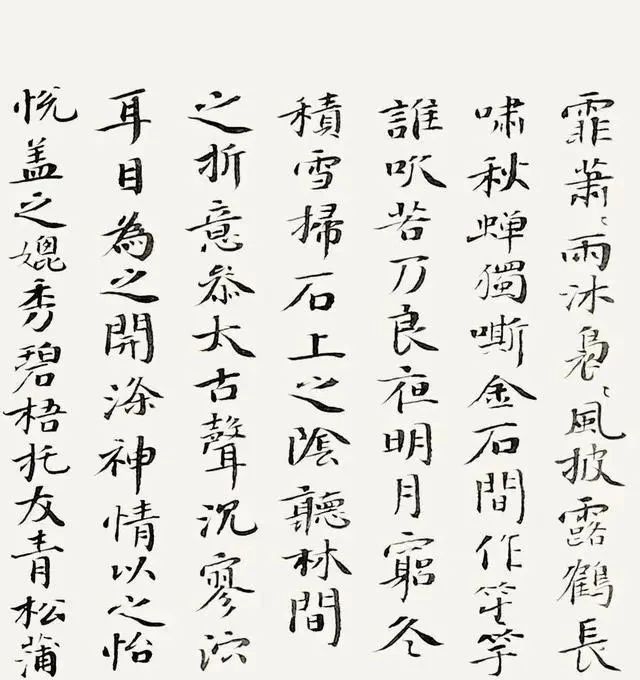 霏蕭〻雨沐裊〻風披露鶴長
嘯秋蟬獨嘶金石間作笙竽
誰吹若乃良夜明月窮冬
積雪掃石上之陰聽林間
之折意叅太古聲沉寥泬
耳目為之開滌神情以之怡
悅盖之媲秀碧梧托友青松蒲